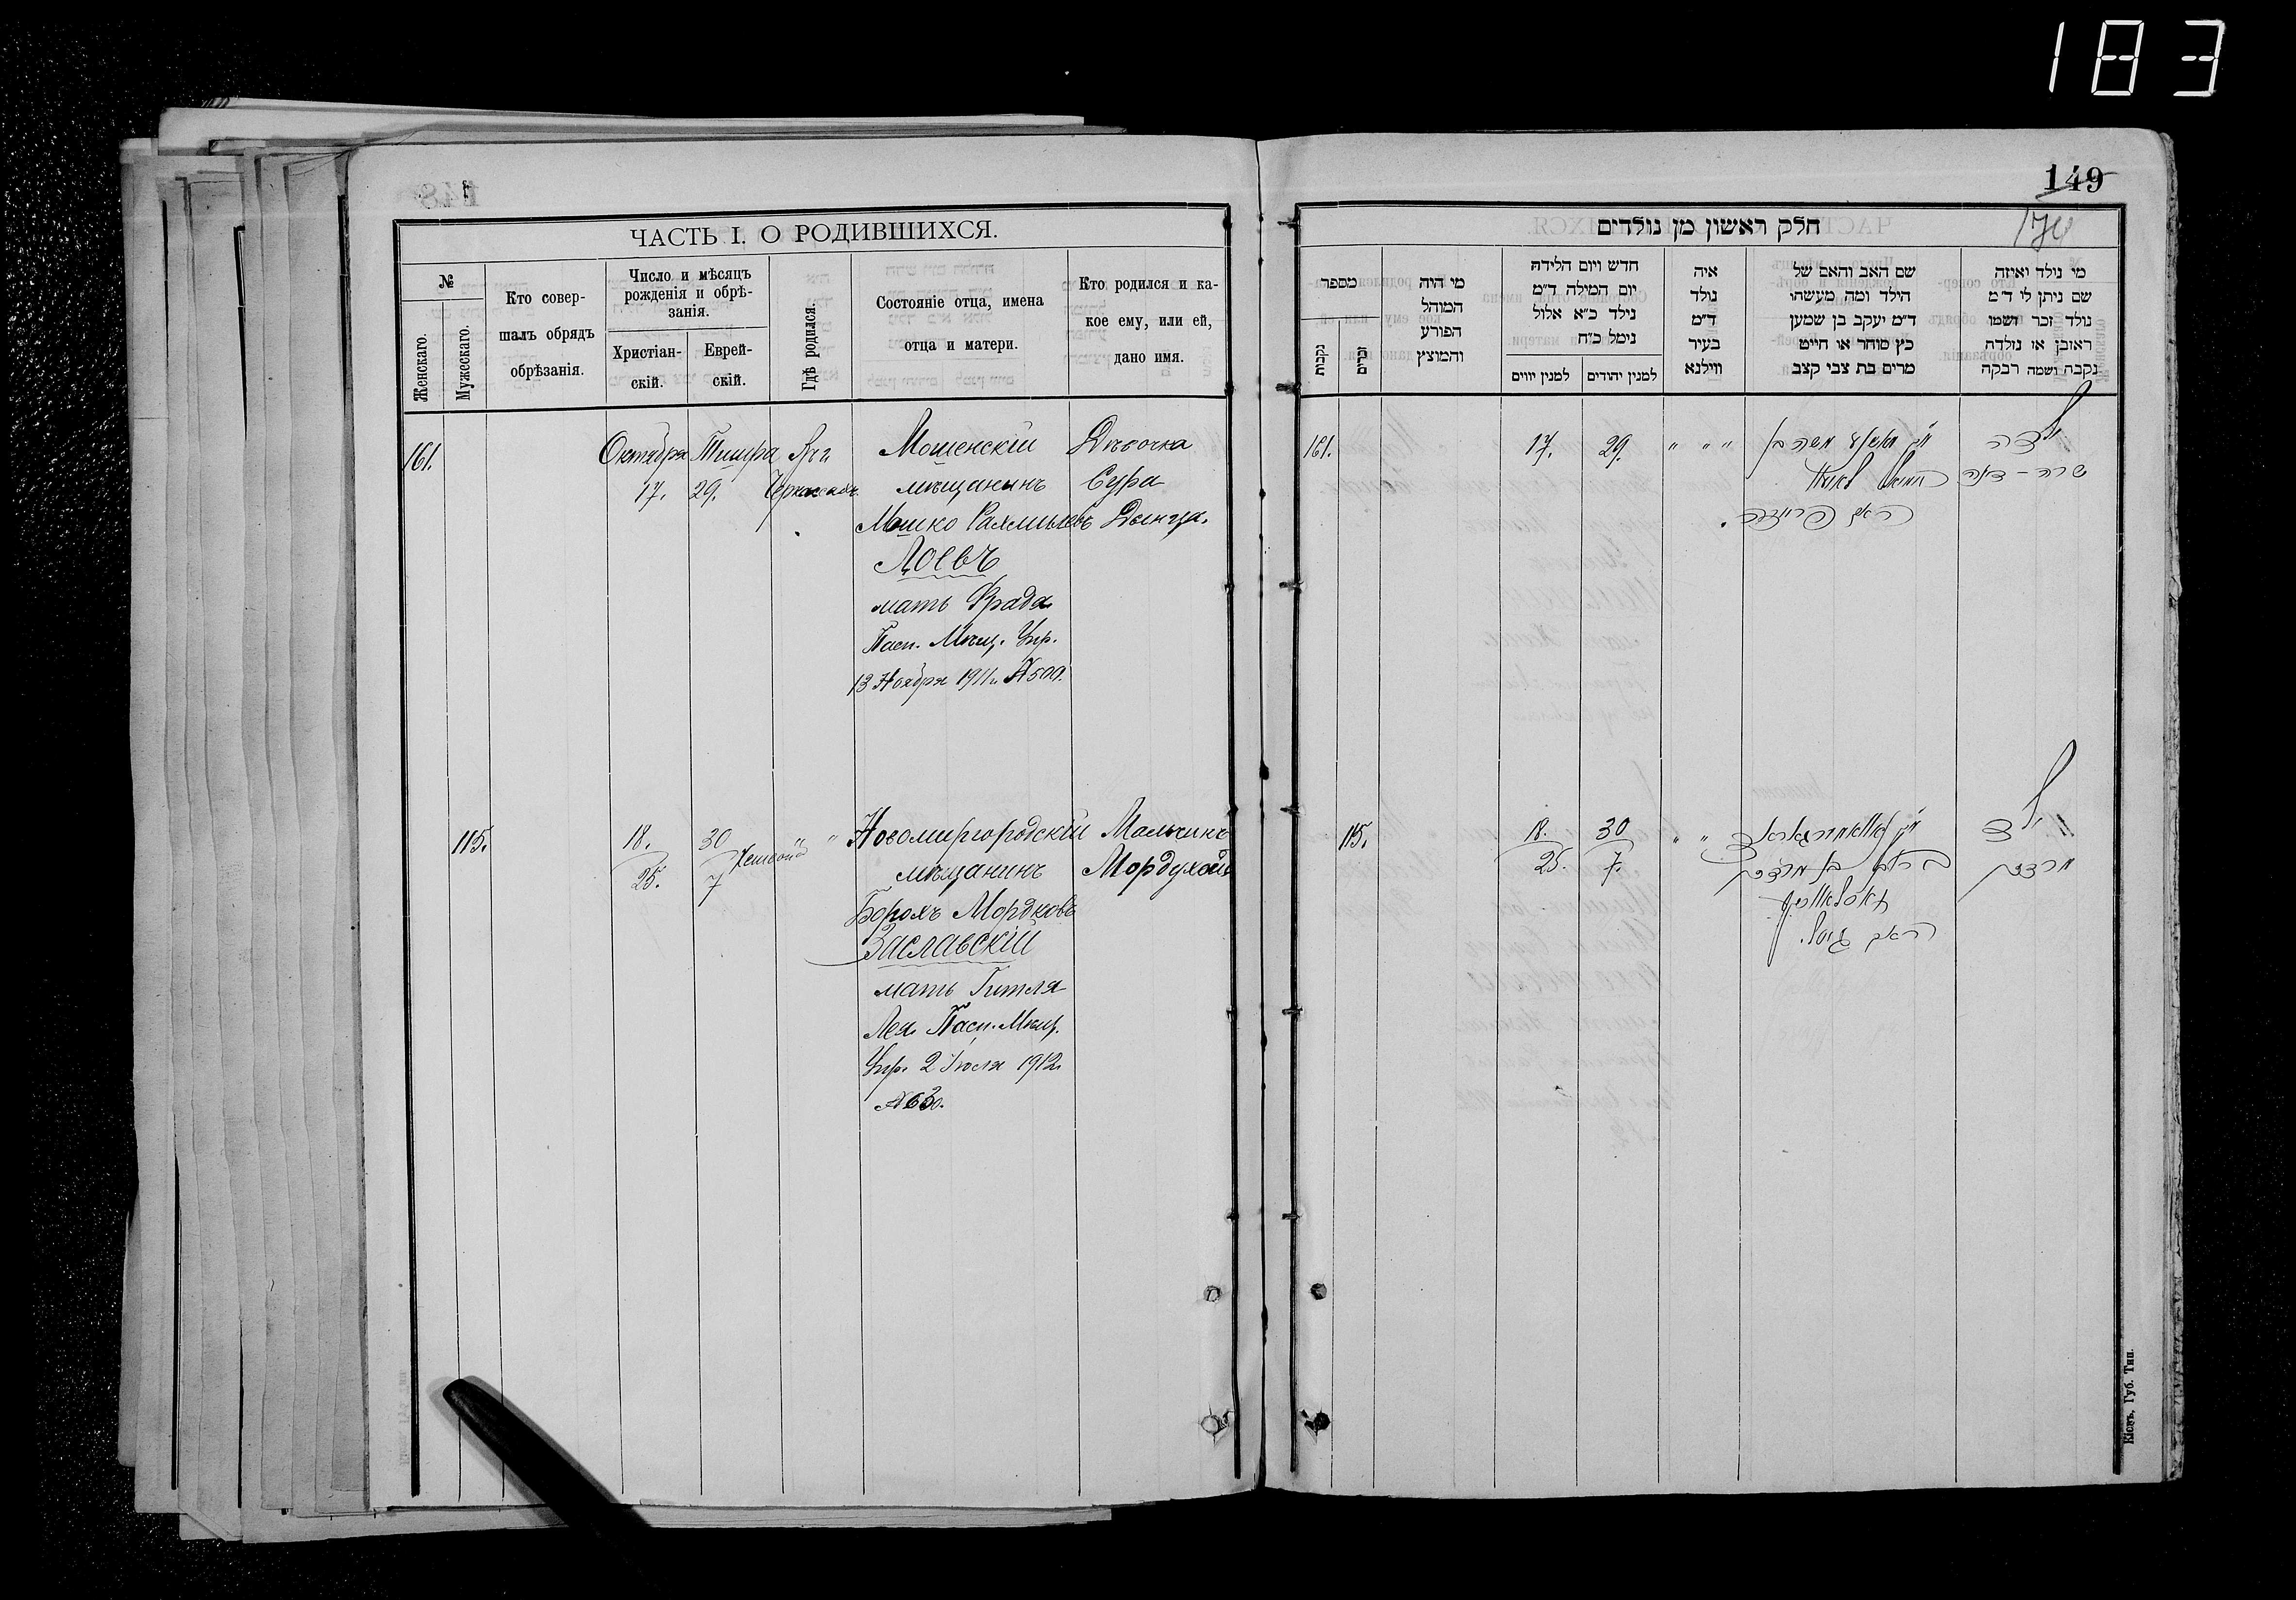 183
ЧАСТЬ I. О РОДИВШИХСЯ.
№
Женскаго.
Мужескаго.
Кто совер-
шалъ обрядъ
обрѣзанія.
Число и мѣсяцъ
рожденія и обрѣ-
занія.
Христіан-
скій.
Еврей-
скій.
Гдѣ родился.
Состояніе отца, имена
отца и матери.
Кто родился и ка-
кое ему, или ей,
дано имя.
161.
Октября
17.
Тишра
29.
Черкассахъ
Мошенскій
мѣщанинъ
Мошко Рахмилевъ
Лоевъ
мать Фрада
Пасп. Мѣщ. Упр.
13 Ноября 1911 г. №500.
Дѣвочка
Сура
Двинza.
115.
18.
25.
30
7
Хешвонъ
" "
Новомиргородскій
мѣщанинъ
Борохъ Мордковъ
Заславскій
мать Гитля
Лея. Пасп. Мѣщ.
Упр. 2 Іюля 1912.
№630.
Мальчикъ
Мордухай
149
חלק ראשון מן נולדים
מספר
נקבות
זכרים
מי היה
המוהל
הפורע
והמוצץ
חדש ויום הלידה
יום המילה ד״מ
נילד כ״א אלול
נימל כ״ח
למנין יוונים
למנין יהודים
איה
נולד
ד״מ
בעיר
ווילנא
שם האב והאם של
הילד ומה מעשהו
ד״מ יעקב בן שמען
כץ סוחר או חייט
מרים בת צבי קצב
מי נולד ואיזה
שם ניתן לו ד״מ
נולד זכר ושמו
ראובן או נולדה
נקבה ושמה רבקה
161.
17.
29.
" " "
משה בן
האם פריידא.
ילדה
שרה-דינה
115.
18.
25.
30
7.
" "
ברוך בן מרדכי
זאסלאווסקי
האם גיטל.
ילד
מרדכי
Кіевъ, Губ. Тип.